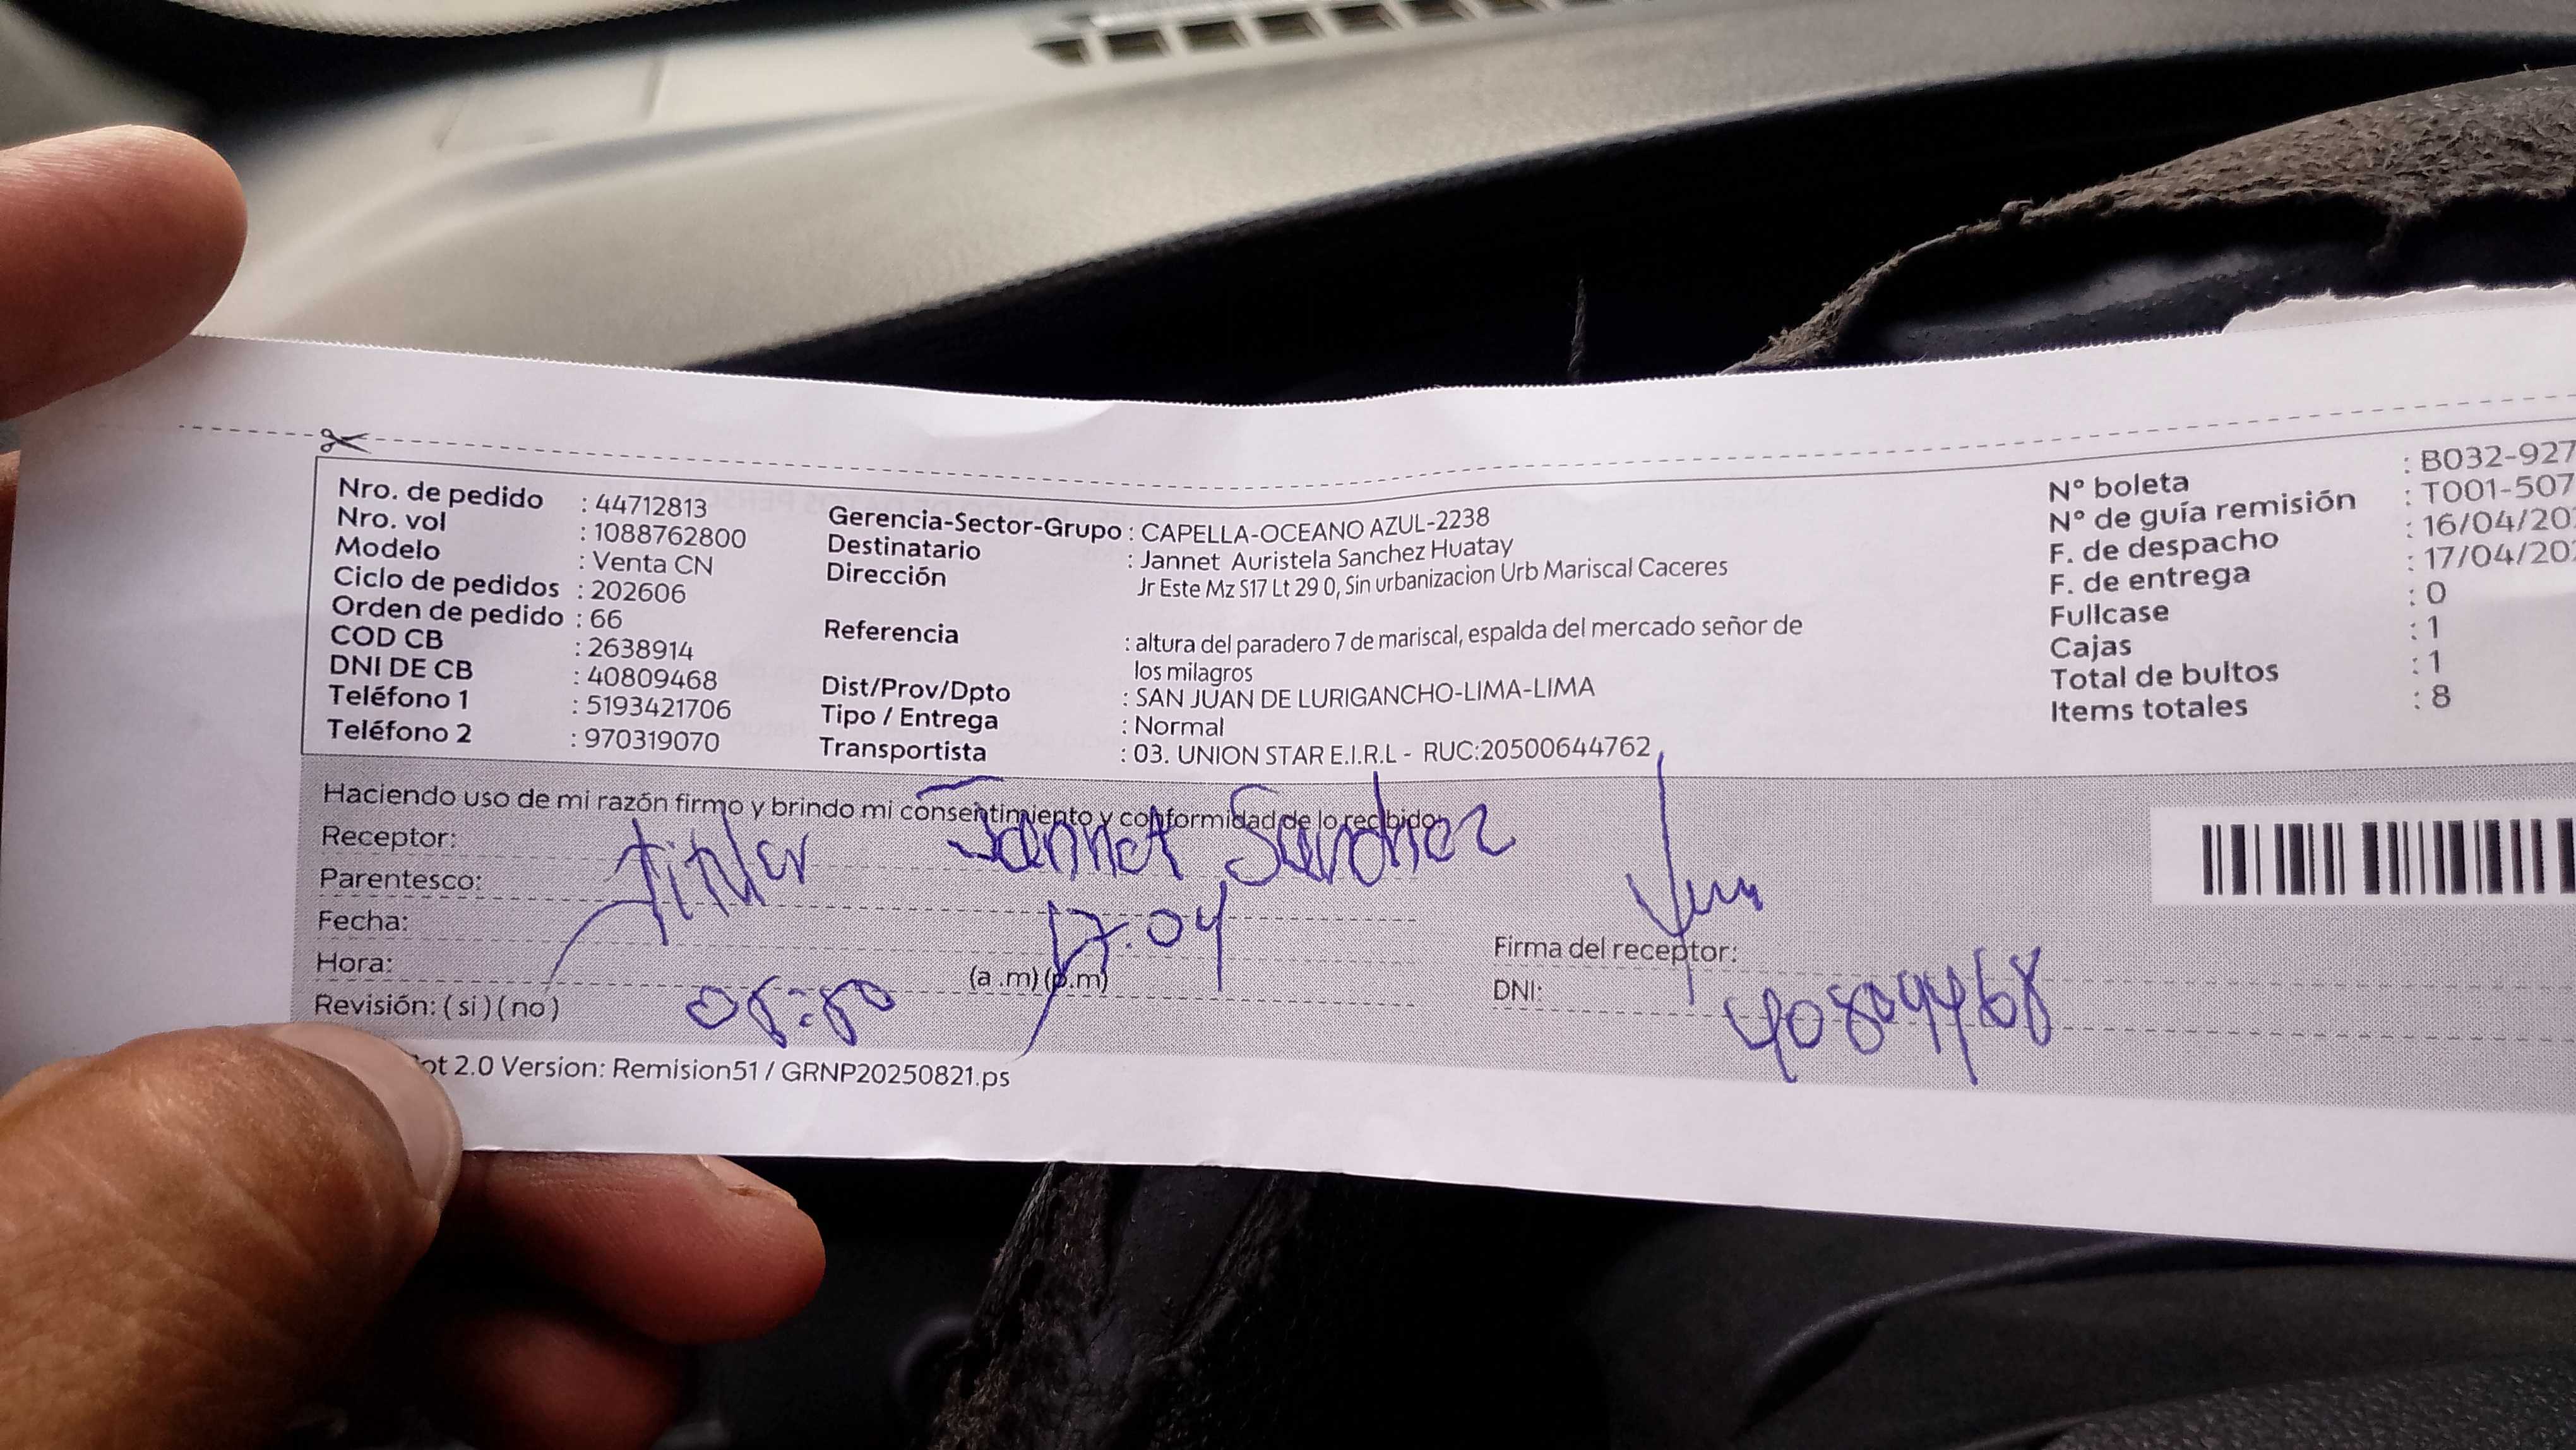 Nro. de pedido : 44712813
Nro. vol : 1088762800
Modelo : Venta CN
Ciclo de pedidos : 202606
Orden de pedido : 66
COD CB : 2638914
DNI DE CB : 40809468
Teléfono 1 : 5193421706
Teléfono 2 : 970319070
Gerencia-Sector-Grupo : CAPELLA-OCEANO AZUL-2238
Destinatario : Jannet Auristela Sanchez Huatay
Dirección Jr Este Mz S17 Lt 29 0, Sin urbanizacion Urb Mariscal Caceres
Referencia : altura del paradero 7 de mariscal, espalda del mercado señor de
los milagros
Dist/Prov/Dpto : SAN JUAN DE LURIGANCHO-LIMA-LIMA
Tipo / Entrega : Normal
Transportista : 03. UNION STAR E.I.R.L - RUC:20500644762
Nº boleta : B032-927
Nº de guía remisión : T001-507
F. de despacho : 16/04/20
F. de entrega : 17/04/20
Fullcase : 0
Cajas : 1
Total de bultos : 1
Items totales : 8
Haciendo uso de mi razón firmo y brindo mi consentimiento y conformidad de lo recibido.
Receptor: Jannet Sanchez
Parentesco: titular
Fecha: 17.04
Hora: (a .m) (p.m)
Revisión: ( si ) ( no )
Firma del receptor:
DNI: 40809468
ot 2.0 Version: Remision51 / GRNP20250821.ps